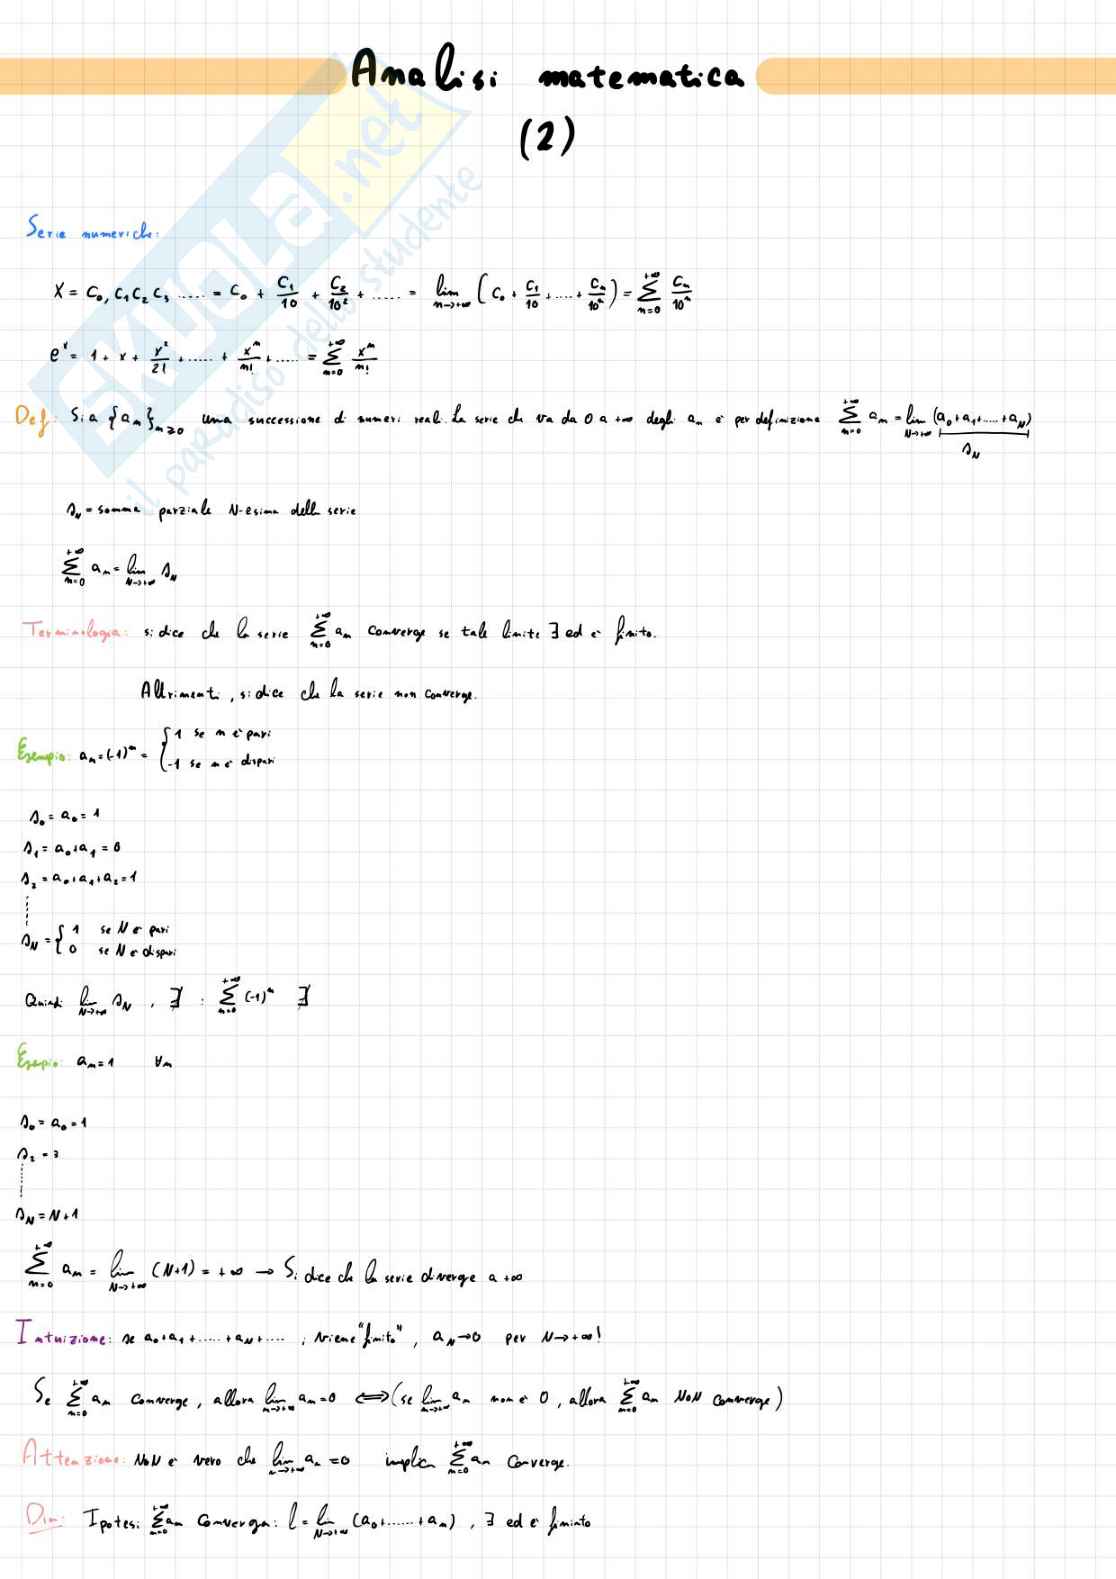 Analisi matematica
(2)
SKUOLA.net
il paradiso dello studente
Serie numeriche:
X = C₀, C₁ C₂ C₃ ..... = C₀ + C₁/10 + C₂/10² + ..... = lim n→+∞ (C₀ + C₁/10 + .... + Cₙ/10ⁿ) = ∑ n=0 +∞ Cₙ/10ⁿ
eˣ = 1 + x + x²/2! + ..... + xⁿ/n! + ..... = ∑ n=0 +∞ xⁿ/n!
Def: Sia {aₙ}n≥0 una successione di numeri reali. La serie che va da 0 a +∞ degli aₙ è per definizione ∑ n=0 +∞ aₙ = lim N→+∞ (a₀+a₁+....+a_N)
s_N
s_N = somma parziale N-esima della serie
∑ n=0 +∞ aₙ = lim N→+∞ s_N
Terminologia: si dice che la serie ∑ n=0 +∞ aₙ converge se tale limite ∃ ed è finito.
Altrimenti, si dice che la serie non converge.
Esempio: aₙ = (-1)ⁿ = { 1 se n è pari
-1 se n è dispari
s₀ = a₀ = 1
s₁ = a₀+a₁ = 0
s₂ = a₀+a₁+a₂ = 1
s_N = { 1 se N è pari
0 se N è dispari
Quindi lim N→+∞ s_N , ∄ : ∑ n=0 +∞ (-1)ⁿ ∄
Esepio: aₙ = 1 ∀n
s₀ = a₀ = 1
s₂ = 3
s_N = N+1
∑ n=0 +∞ aₙ = lim N→+∞ (N+1) = +∞ → Si dice che la serie diverge a +∞
Intuizione: se a₀+a₁+.....+a_N+...., viene "finito", a_N→0 per N→+∞!
Se ∑ n=0 +∞ aₙ converge, allora lim n→+∞ aₙ = 0 ⟺ (se lim n→+∞ aₙ non è 0, allora ∑ n=0 +∞ aₙ NON converge)
Attenzione: NON è vero che lim n→+∞ aₙ = 0 implica ∑ n=0 +∞ aₙ converge.
Dim: Ipotesi ∑ n=0 +∞ aₙ converga: l = lim N→+∞ (a₀+......+aₙ) , ∃ ed è fininto